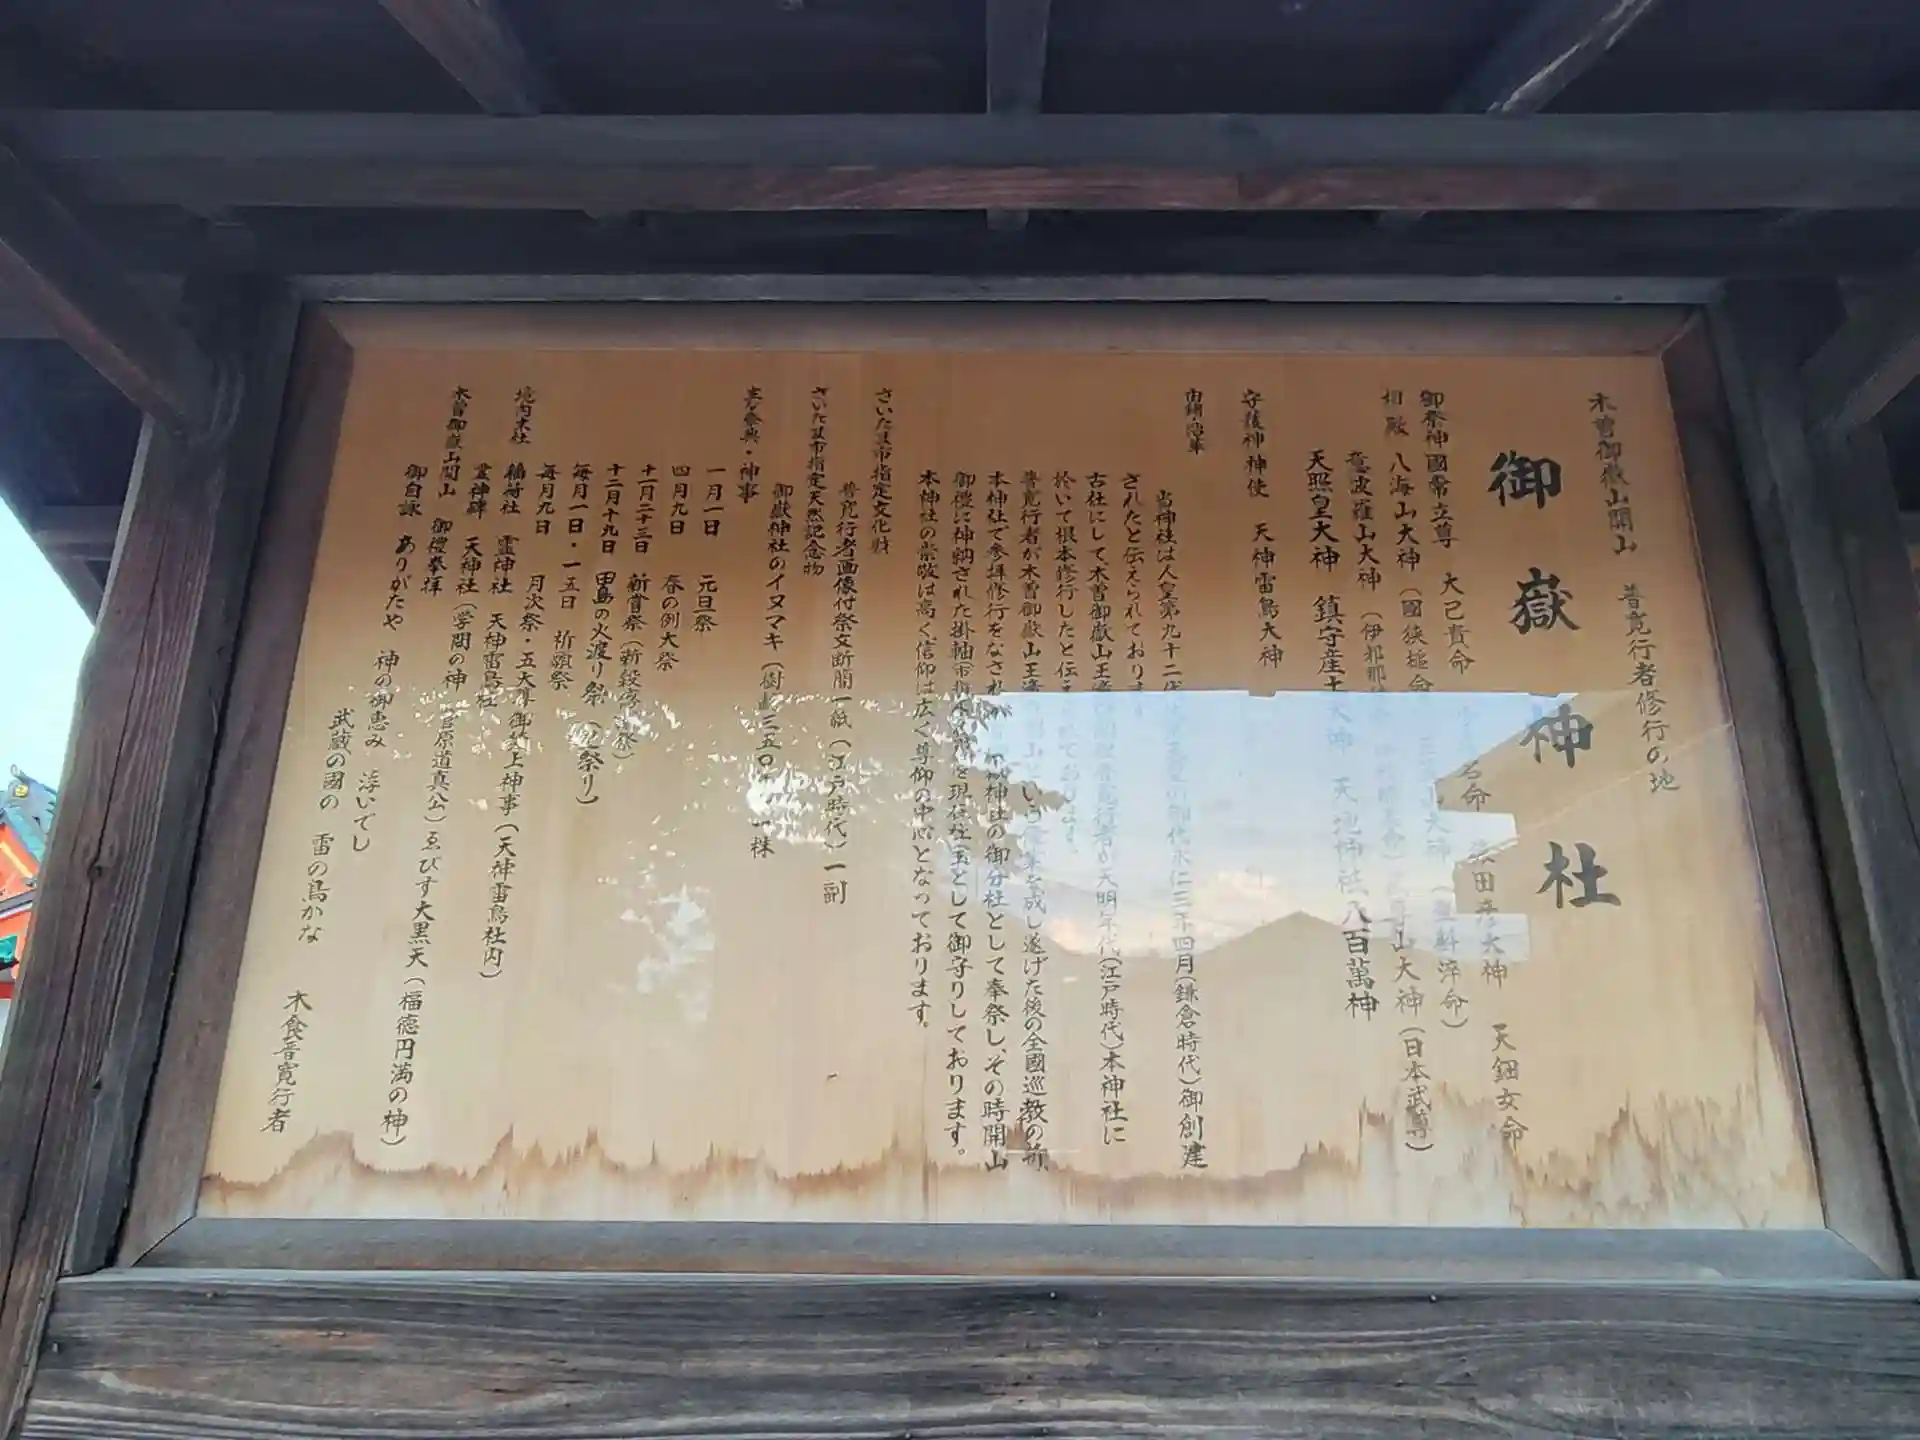 木曽御嶽山開山 普寛行者修行の地
御嶽神社
御祭神 國常立尊 大己貴命 少彦名命 猿田彦大神 天鈿女命
相殿 八海山大神（國狭槌命）三笠山大神（豊斟渟命）
意波羅山大神（伊邪那 山大神（日本武尊）
天照皇大神 鎮守産土大神 天地神社八百萬神
守護神神使 天神雷鳥大神
由緒沿革
当神社は人皇第九十二代 御代永仁三年四月（鎌倉時代）御創建
されたと伝えられております。
古社にして、木曽御嶽山王滝口開闢普寛行者が天明年代（江戸時代）本神社に
於いて根本修行したと伝えられております。
普寛行者が木曽御嶽山王滝口開山という偉業を成し遂げた後の全國巡教の折
本神社で参拝修行をなされ 神社の御分社として奉祭し、その時開山
御禮に神納された掛軸（市指定 を現在社宝として御守りしております。
本神社の崇敬は高く信仰は広く尊仰の中心となっております。
さいたま市指定文化財
普寛行者画像付祭文断簡一紙（江戸時代）一副
さいたま市指定天然記念物
御嶽神社のイヌマキ（樹齢三五〇 一株
主な祭典・神事
一月一日 元旦祭
四月九日 春の例大祭
十一月二十三日 新嘗祭（新穀 祭）
十二月十九日 田島の火渡り祭（ 祭り）
毎月一日・一五日 祈願祭
毎月九日 月次祭・五大尊御 上神事（天神雷鳥社内）
境内末社
稲荷社 霊神社 天神雷鳥社
霊神碑 天神社（学問の神 菅原道真公）ゑびす大黒天（福徳円満の神）
木曽御嶽山開山 御禮奉拝
御自詠 ありがたや 神の御恵み 浮いでし
武蔵の國の 雷の鳥かな
木食普寛行者